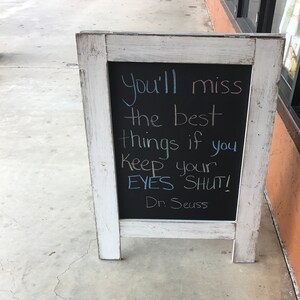 you'll miss
the best
things if you
keep your
EYES SHUT!
Dr. Seuss